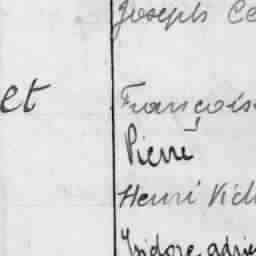 Joseph Ce
et
François
Pierre
Henri Vict
Isidore adrie